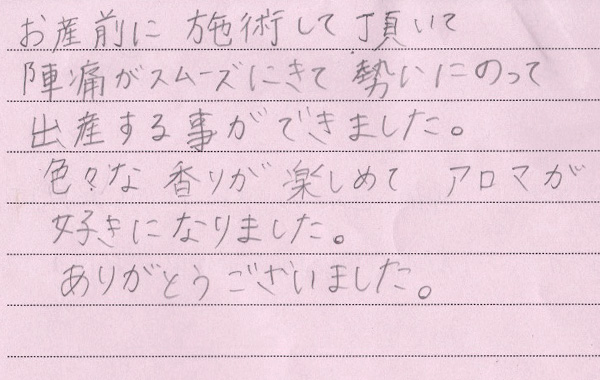 お産前に 施術して頂いて
陣痛がスムーズにきて 勢いにのって
出産する事ができました。
色々な 香りが 楽しめて アロマが
好きになりました。
ありがとうございました。